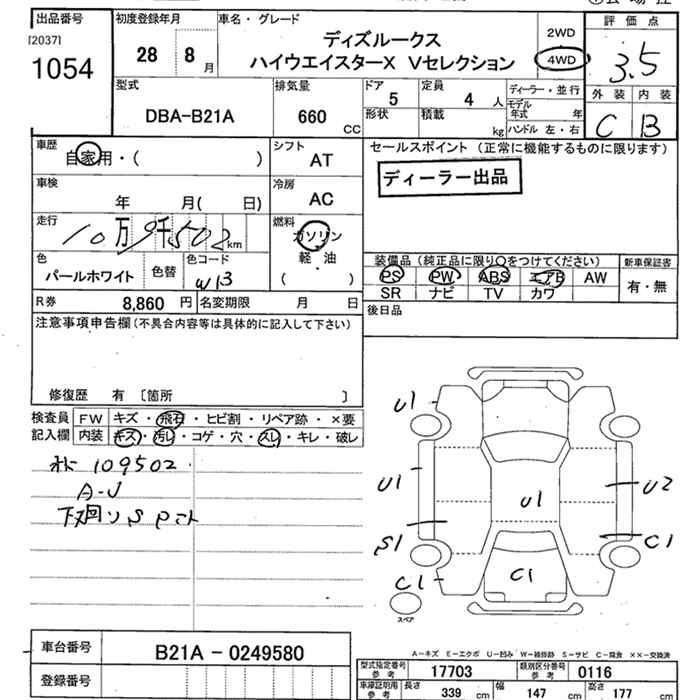 出品番号
[2037]
1054
初度登録年月
28 8 月
車名・グレード
ディズルークス
ハイウエイスターX Vセレクション
2WD
4WD
評価点
3.5
外装 内装
C B
型式
DBA-B21A
排気量
660 CC
ドア
5
形状
定員
4 人
積載
kg
ディーラー・並行
モデル年式 年
ハンドル 左・右
車歴
自家用・( )
シフト
AT
車検
年 月( 日)
冷房
AC
走行
10万9千502km
燃料
ガソリン
軽・油
( )
色
パールホワイト
色替
色コード
W13
R券 8,860 円 名変期限 月 日
セールスポイント (正常に機能するものに限ります)
ディーラー出品
装備品(純正品に限り○をつけてください)
PS PW ABS エアB AW
SR ナビ TV カワ
新車保証書
有・無
後日品
注意事項申告欄(不具合内容等は具体的に記入して下さい)
修復歴 有 〔箇所 〕
検査員記入欄
FW キズ・飛石・ヒビ割・リペア跡・×要
内装 キズ・汚レ・コゲ・穴・スレ・キレ・破レ
109502
A-J
U1
U1
S1
C1
U1
C1
U2
C1
スペア
A-キズ E-エクボ U-凹み W-補修跡 S-サビ C-腐食 ××-交換済
車台番号
B21A - 0249580
登録番号
型式指定番号 参考 17703
類別区分番号 参考 0116
車庫証明用 参考 長さ 339 cm 幅 147 cm 高さ 177 cm